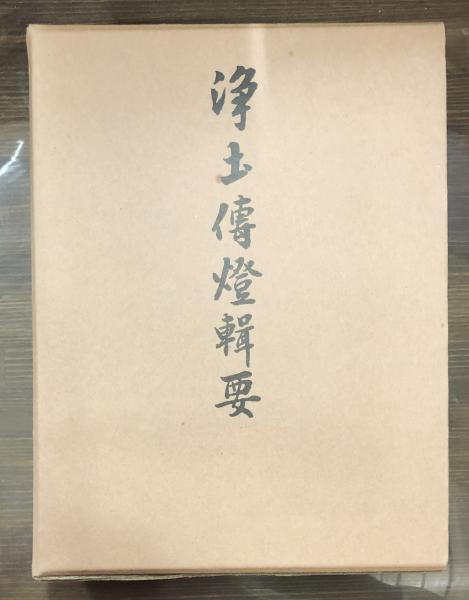 浄土傳燈輯要